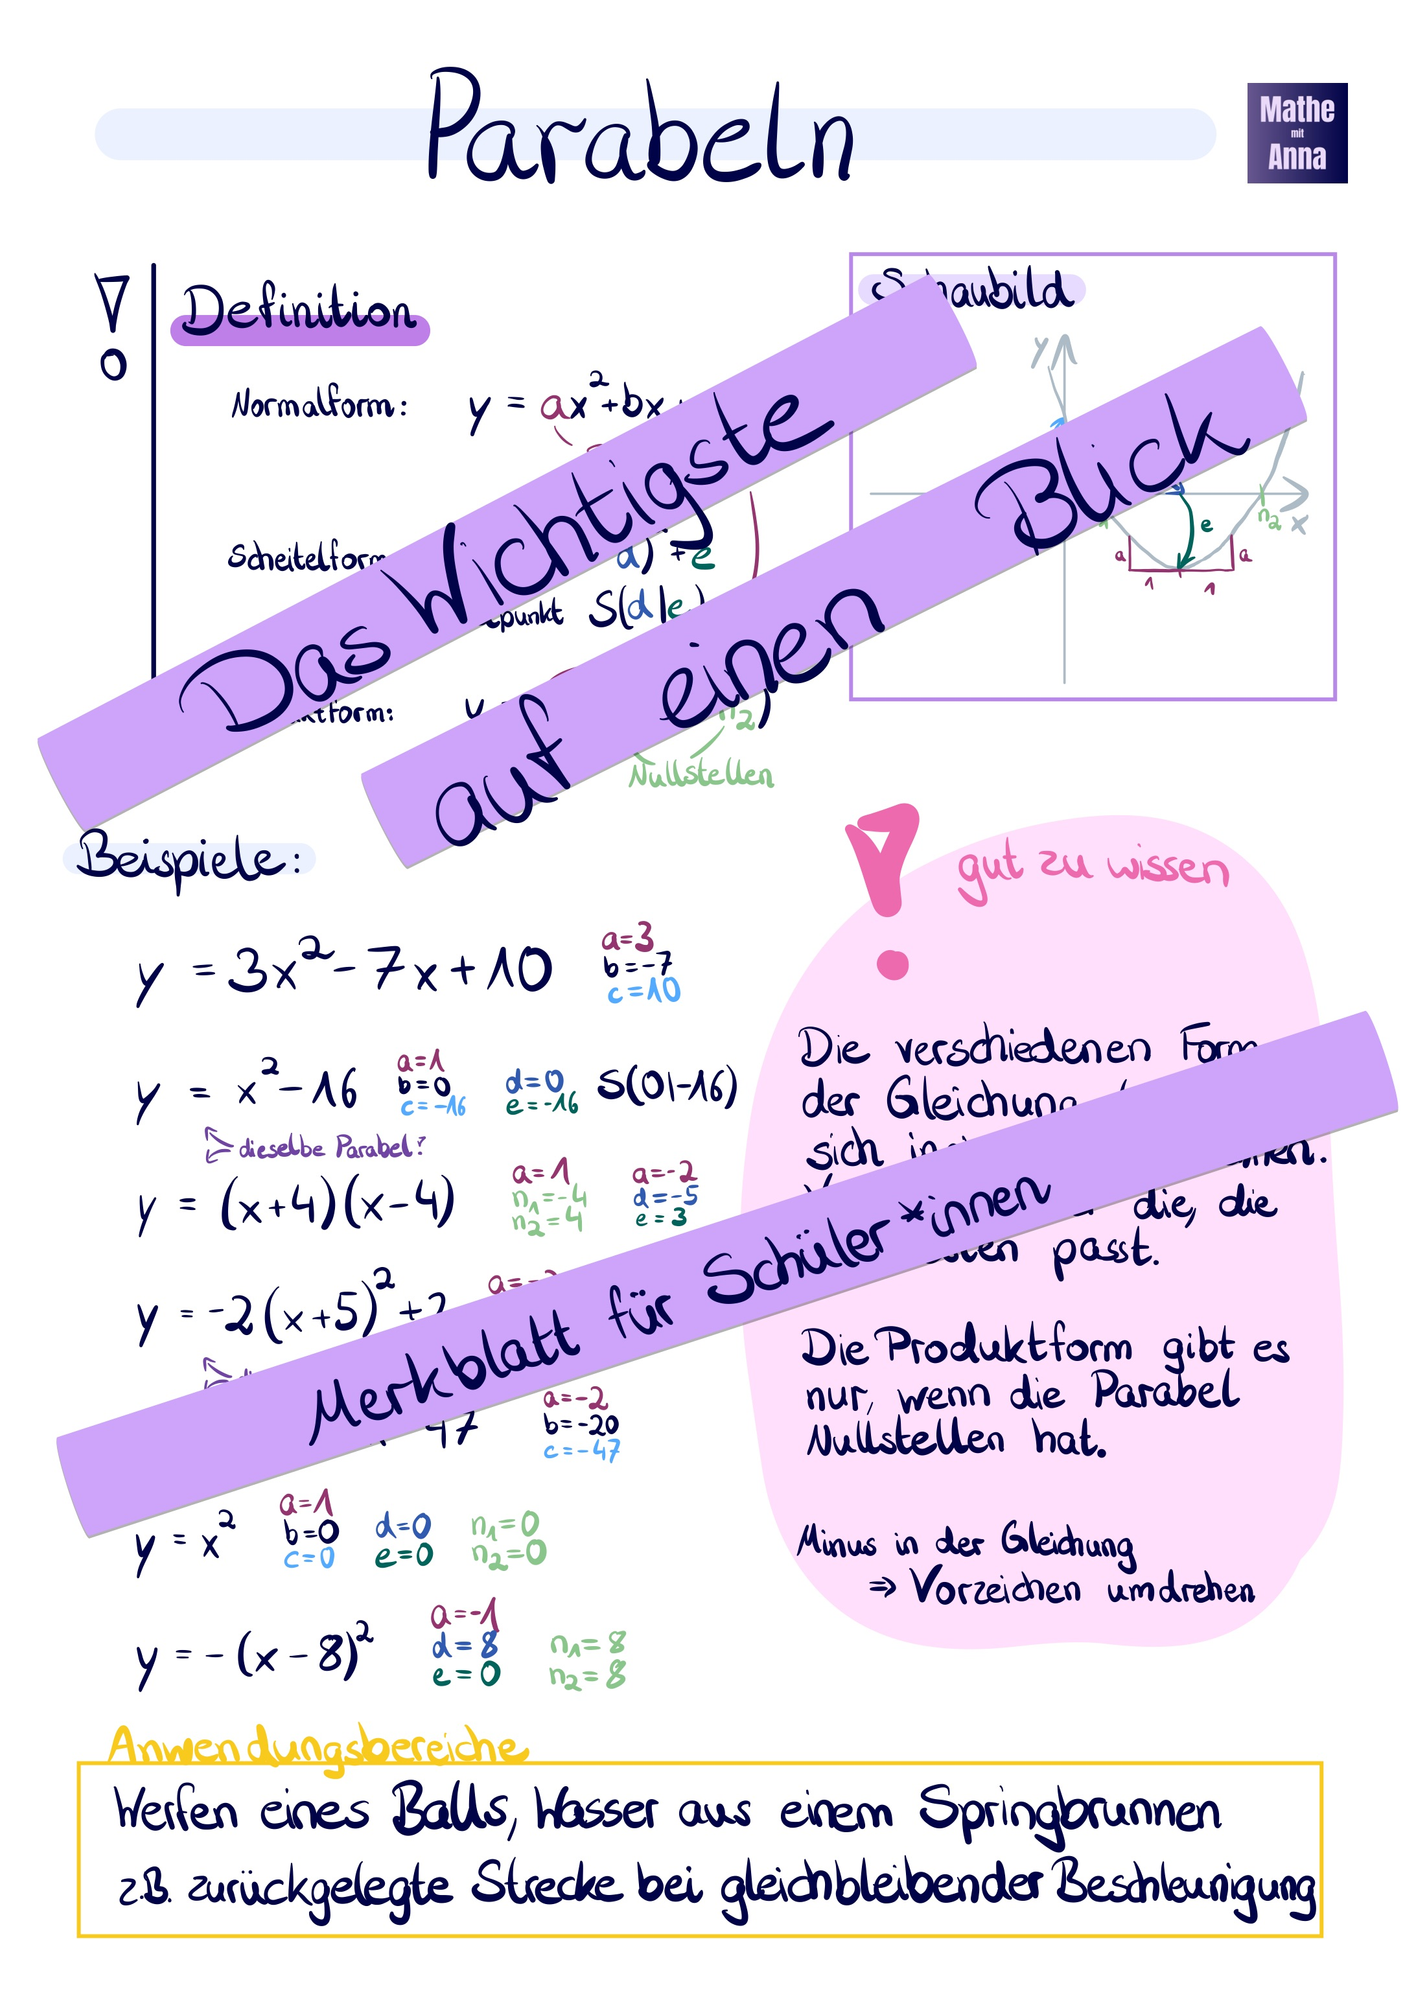 Parabeln
Mathe
mit
Anna
Definition
Normalform: y = ax²+bx
Scheitelform
d)²+e
S(d|e)
y
n₂
Nullstellen
Schaubild
y
x
n₂
e
a
a
1
1
Das Wichtigste
auf einen Blick
Beispiele:
y = 3x²-7x+10
a=3
b=-7
c=10
y = x²-16
a=1
b=0
c=-16
d=0
e=-16
S(0|-16)
dieselbe Parabel!
y = (x+4)(x-4)
a=1
n₁=-4
n₂=4
a=-2
d=-5
e=3
y = -2(x+5)²+
47
a=-2
b=-20
c=-47
y = x²
a=1
b=0
c=0
d=0
e=0
n₁=0
n₂=0
y = -(x-8)²
a=-1
d=8
e=0
n₁=8
n₂=8
gut zu wissen
Die verschiedenen
der Gleichung
sich
die, die
passt.
Die Produktform gibt es
nur, wenn die Parabel
Nullstellen hat.
Minus in der Gleichung
⇒ Vorzeichen umdrehen
Merkblatt für Schüler*innen
Anwendungsbereiche
Werfen eines Balls, Wasser aus einem Springbrunnen
z.B. zurückgelegte Strecke bei gleichbleibender Beschleunigung